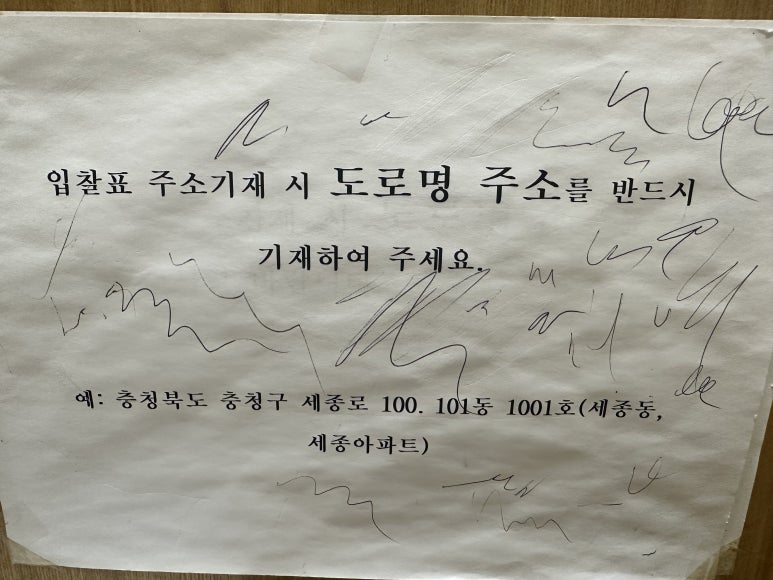 입찰표 주소기재 시 도로명 주소를 반드시
기재하여 주세요.
예: 충청북도 충청구 세종로 100. 101동 1001호(세종동,
세종아파트)